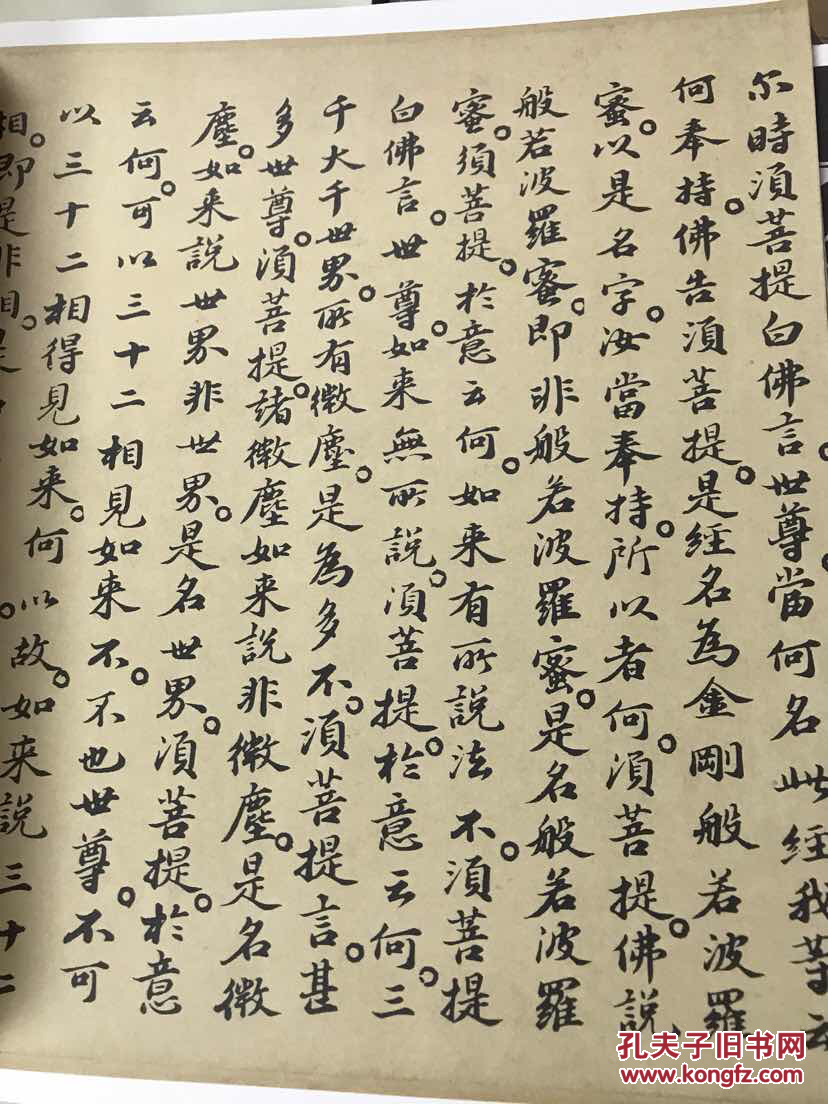 尔時湏菩提白佛言。世尊。當何名此經我等云
何奉持。佛告湏菩提。是經名為金剛般若波羅
蜜。以是名字。汝當奉持。所以者何。湏菩提。佛說
般若波羅蜜。即非般若波羅蜜。是名般若波羅
蜜。須菩提。於意云何。如来有所說法不。湏菩提
白佛言。世尊。如来無所說。湏菩提。於意云何。三
千大千世界。所有微塵。是為多不。湏菩提言。甚
多世尊。湏菩提。諸微塵如来說非微塵。是名微
塵。如来說世界非世界。是名世界。湏菩提。於意
云何。可以三十二相見如来不。不也世尊。不可
以三十二相得見如来。何以故。如来說三十二
相。即是非相。是
孔夫子旧书网
www.kongfz.com